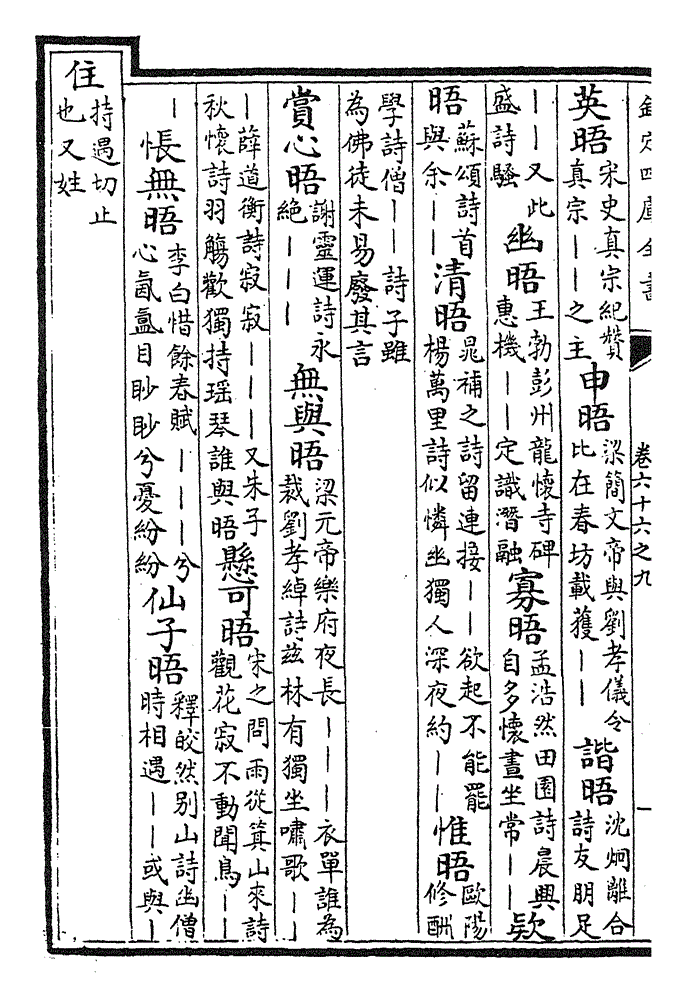 欽定四庫全書
卷六十六之九
英晤宋史真宗紀贊真宗——之主申晤梁簡文帝與劉孝儀令比在春坊載獲——諧晤沈炯離合詩友朋足
——又此盛詩騷幽晤王勃彭州龍懷寺碑惠機——定識潛融寡晤孟浩然田園詩晨興自多懷晝坐常——欵
晤蘇頌詩首與余——清晤晁補之詩留連接——欲起不能罷楊萬里詩似憐幽獨人深夜約——惟晤歐陽修酬
學詩僧——詩子雖為佛徒未易廢其言
賞心晤謝靈運詩永絶———無與晤梁元帝樂府夜長———衣單誰為裁劉孝綽詩茲林有獨坐嘯歌——
—薛道衡詩寂寂———又朱子秋懷詩羽觴歡獨持瑶琴誰與晤懸可晤宋之問雨從箕山來詩觀花寂不動聞鳥——
—悵無晤李白惜餘春賦———兮心氤氳目眇眇兮憂紛紛仙子晤釋皎然別山詩幽僧時相遇——或與—
住持遇切止也又姓